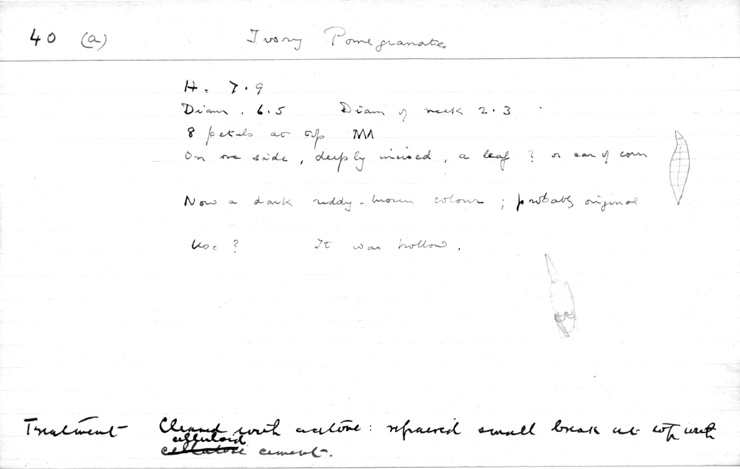 40 (a) Ivory Pomegranate
H. 7.9
Diam. 6.5 Diam of neck 2.3
8 petals at top
On one side, deeply incised, a leaf ? or ear of corn
Now a dark reddy-brown colour ; probably original
Use ? It was hollow.
Treatment Cleaned with acetone : repaired small break at top with
celluloid
cement.